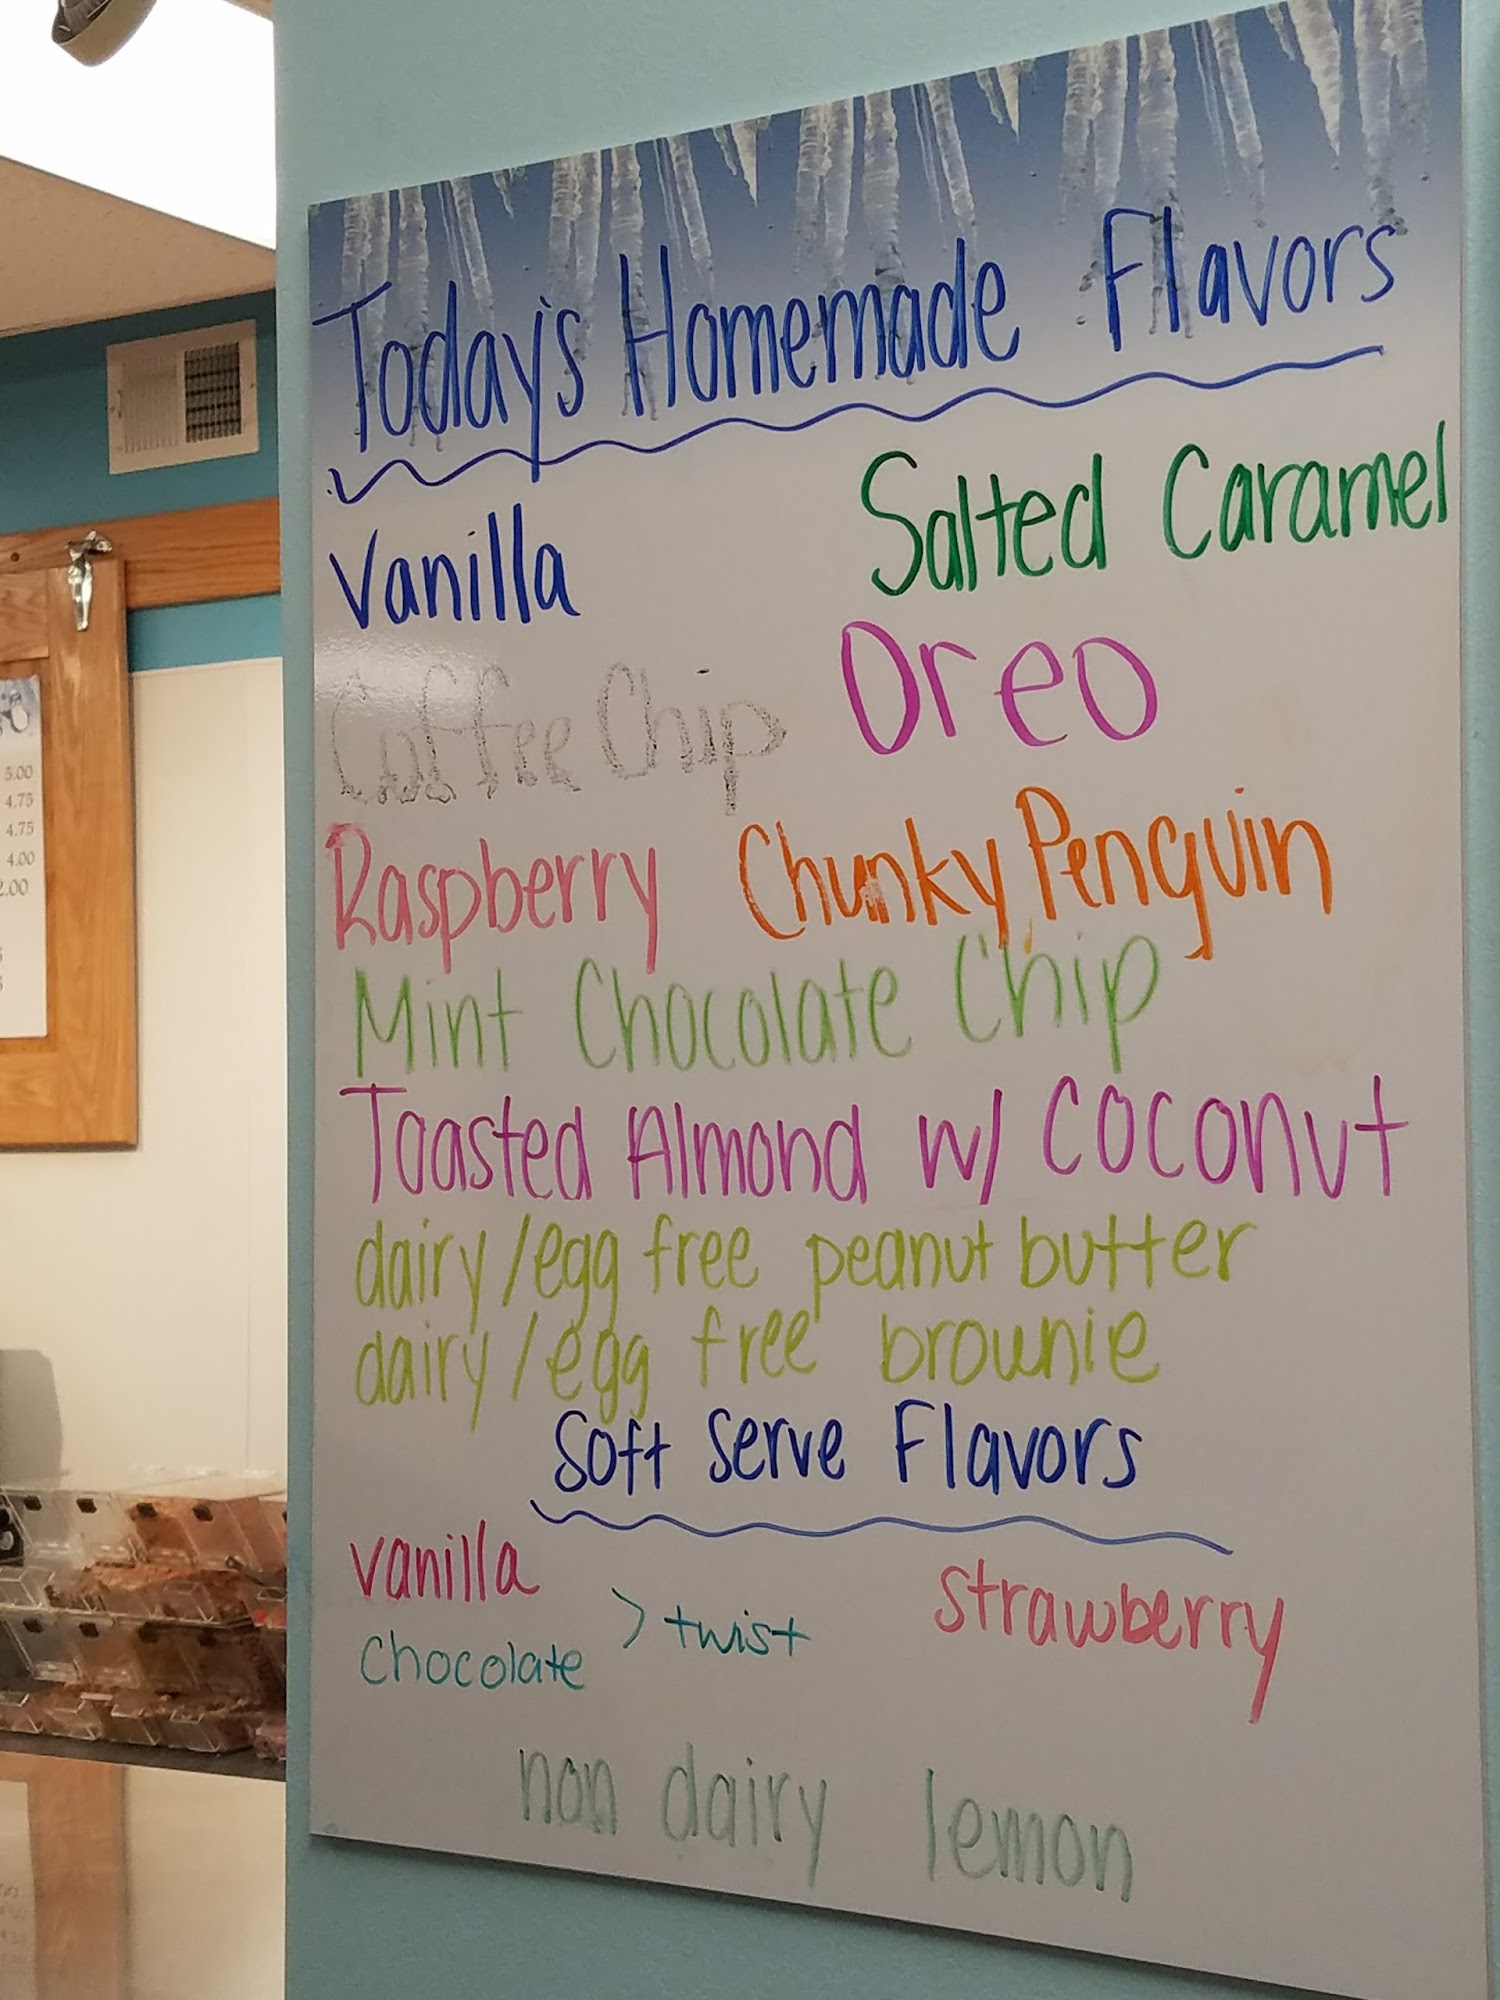 Today's Homemade Flavors
Vanilla
Salted Caramel
Coffee Chip
Oreo
Raspberry
Chunky Penguin
Mint Chocolate Chip
Toasted Almond w/ coconut
dairy/egg free peanut butter
dairy/egg free brownie
Soft Serve Flavors
vanilla
chocolate
> twist
strawberry
non dairy lemon
5.00
4.75
4.75
4.00
2.00